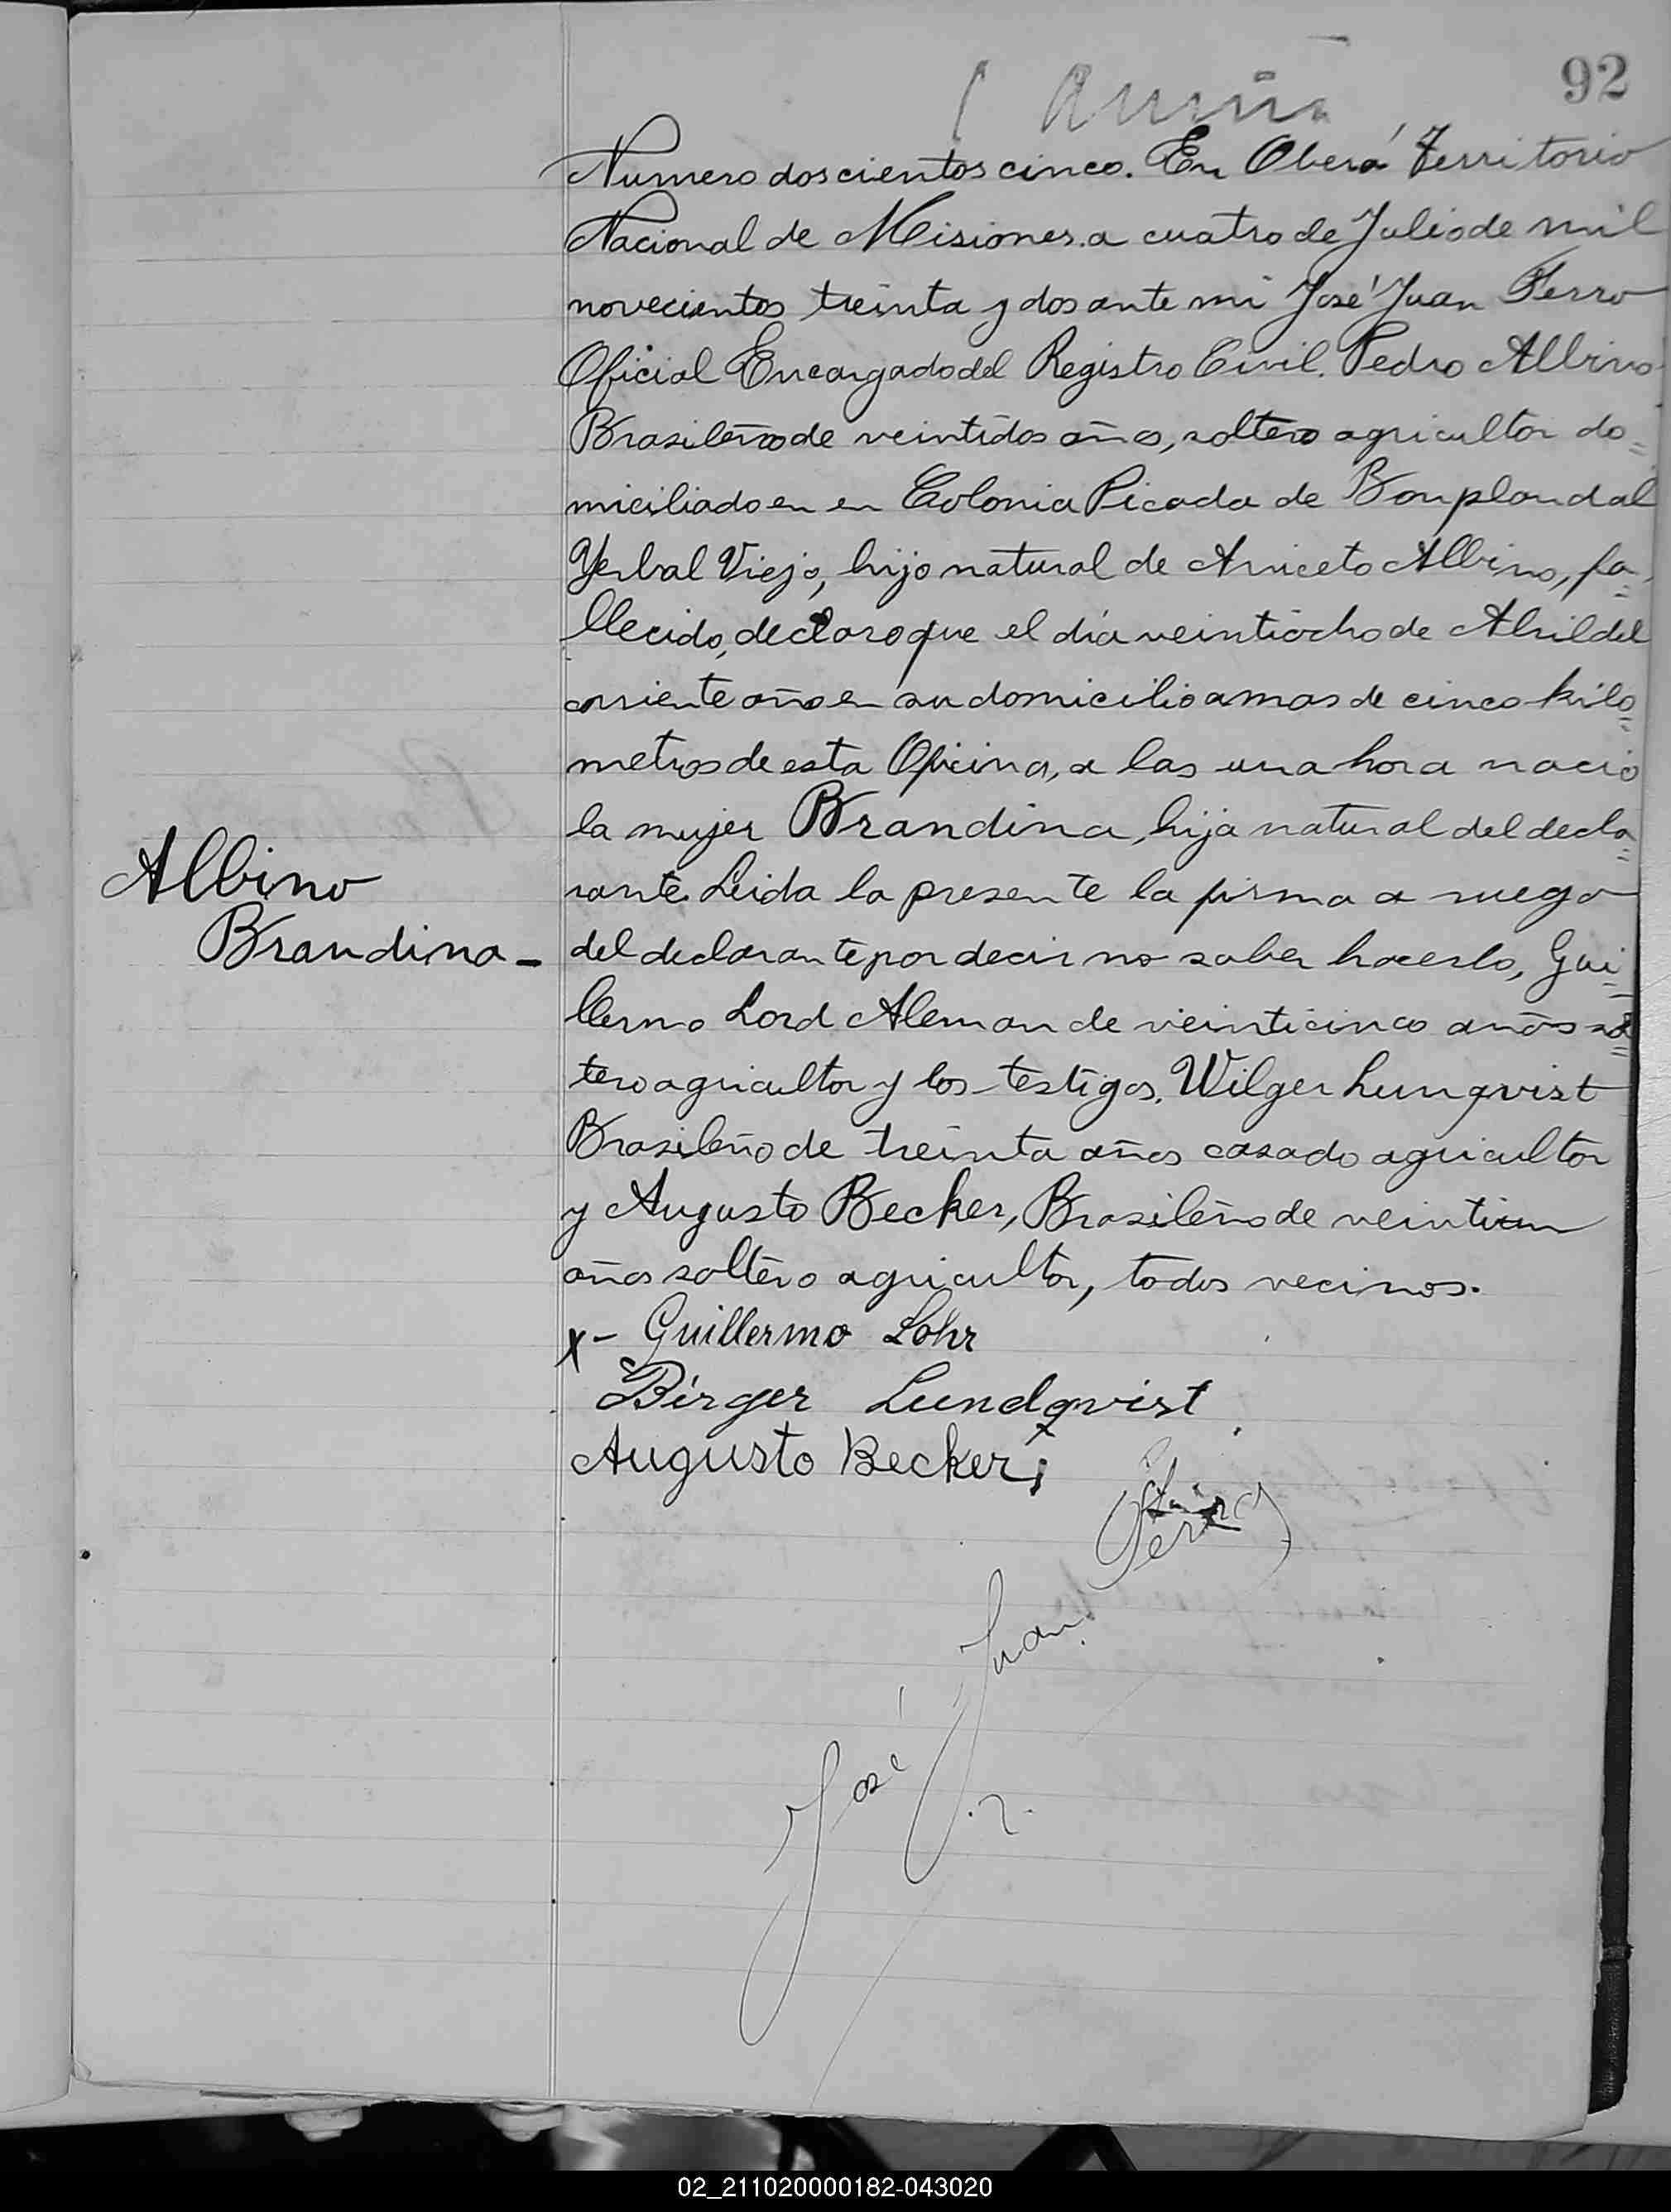 92
Numero doscientos cinco. En Oberá Territorio
Nacional de Misiones. a cuatro de Julio de mil
novecientos treinta y dos ante mi José Juan Ferro
Oficial Encargado del Registro Civil. Pedro Albino
Brasileño de veintidos años, soltero agricultor do=
miciliado en en Colonia Picada de Bonpland al
Yerbal Viejo, hijo natural de Aniceto Albino, fa=
llecido, declaro que el día veintiocho de Abril del
corriente año en su domicilio a mas de cinco kilo=
metros de esta Oficina, a las una hora nacio
la mujer Brandina, hija natural del decla=
Albino
rante. Leida la presente la firma a ruego
Brandina -
del declarante por decir no saber hacerlo, Gui=
llermo Lord Aleman de veinticinco años sol=
tero agricultor y los testigos, Wilger Lunqvist
Brasileño de treinta años casado agricultor
y Augusto Becker, Brasileño de veintiun
años soltero agricultor, todos vecinos.
x- Guillermo Lohr
Birger Lundqvist
Augusto Becker;
José Juan Ferro
02_211020000182-043020